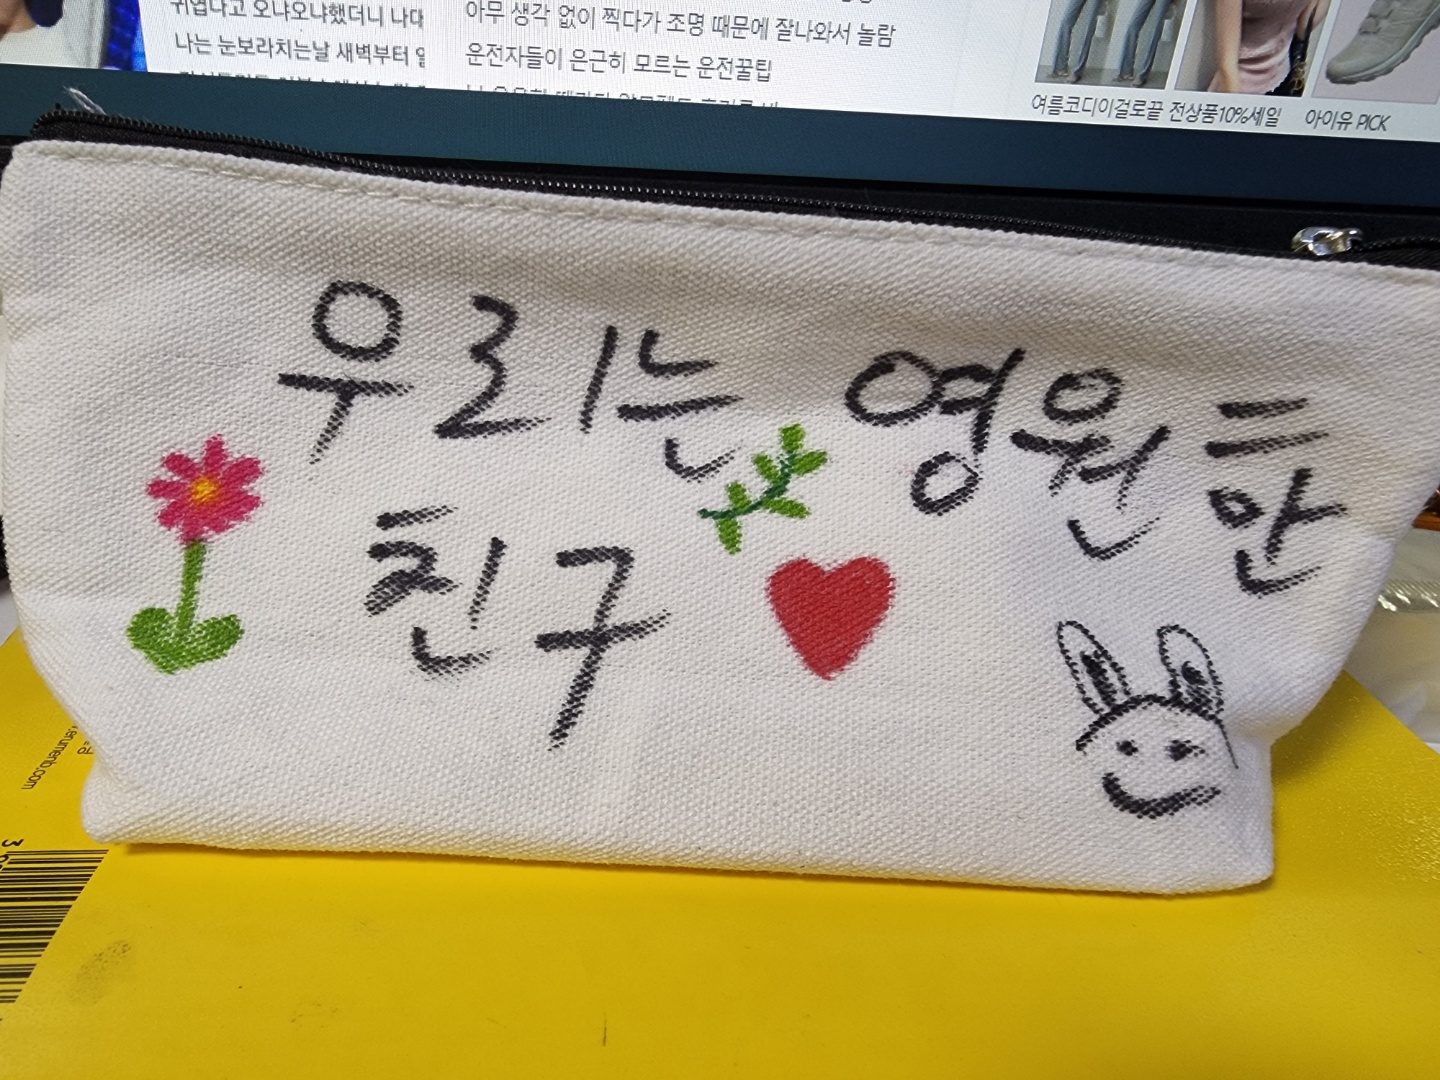 귀엽다고 오냐오냐했더니 나대
나는 눈보라치는날 새벽부터
아무 생각 없이 찍다가 조명 때문에 잘나와서 놀람
운전자들이 은근히 모르는 운전꿀팁
여름코디이걸로끝 전상품10%세일
아이유 PICK
우리는 영원한
친구